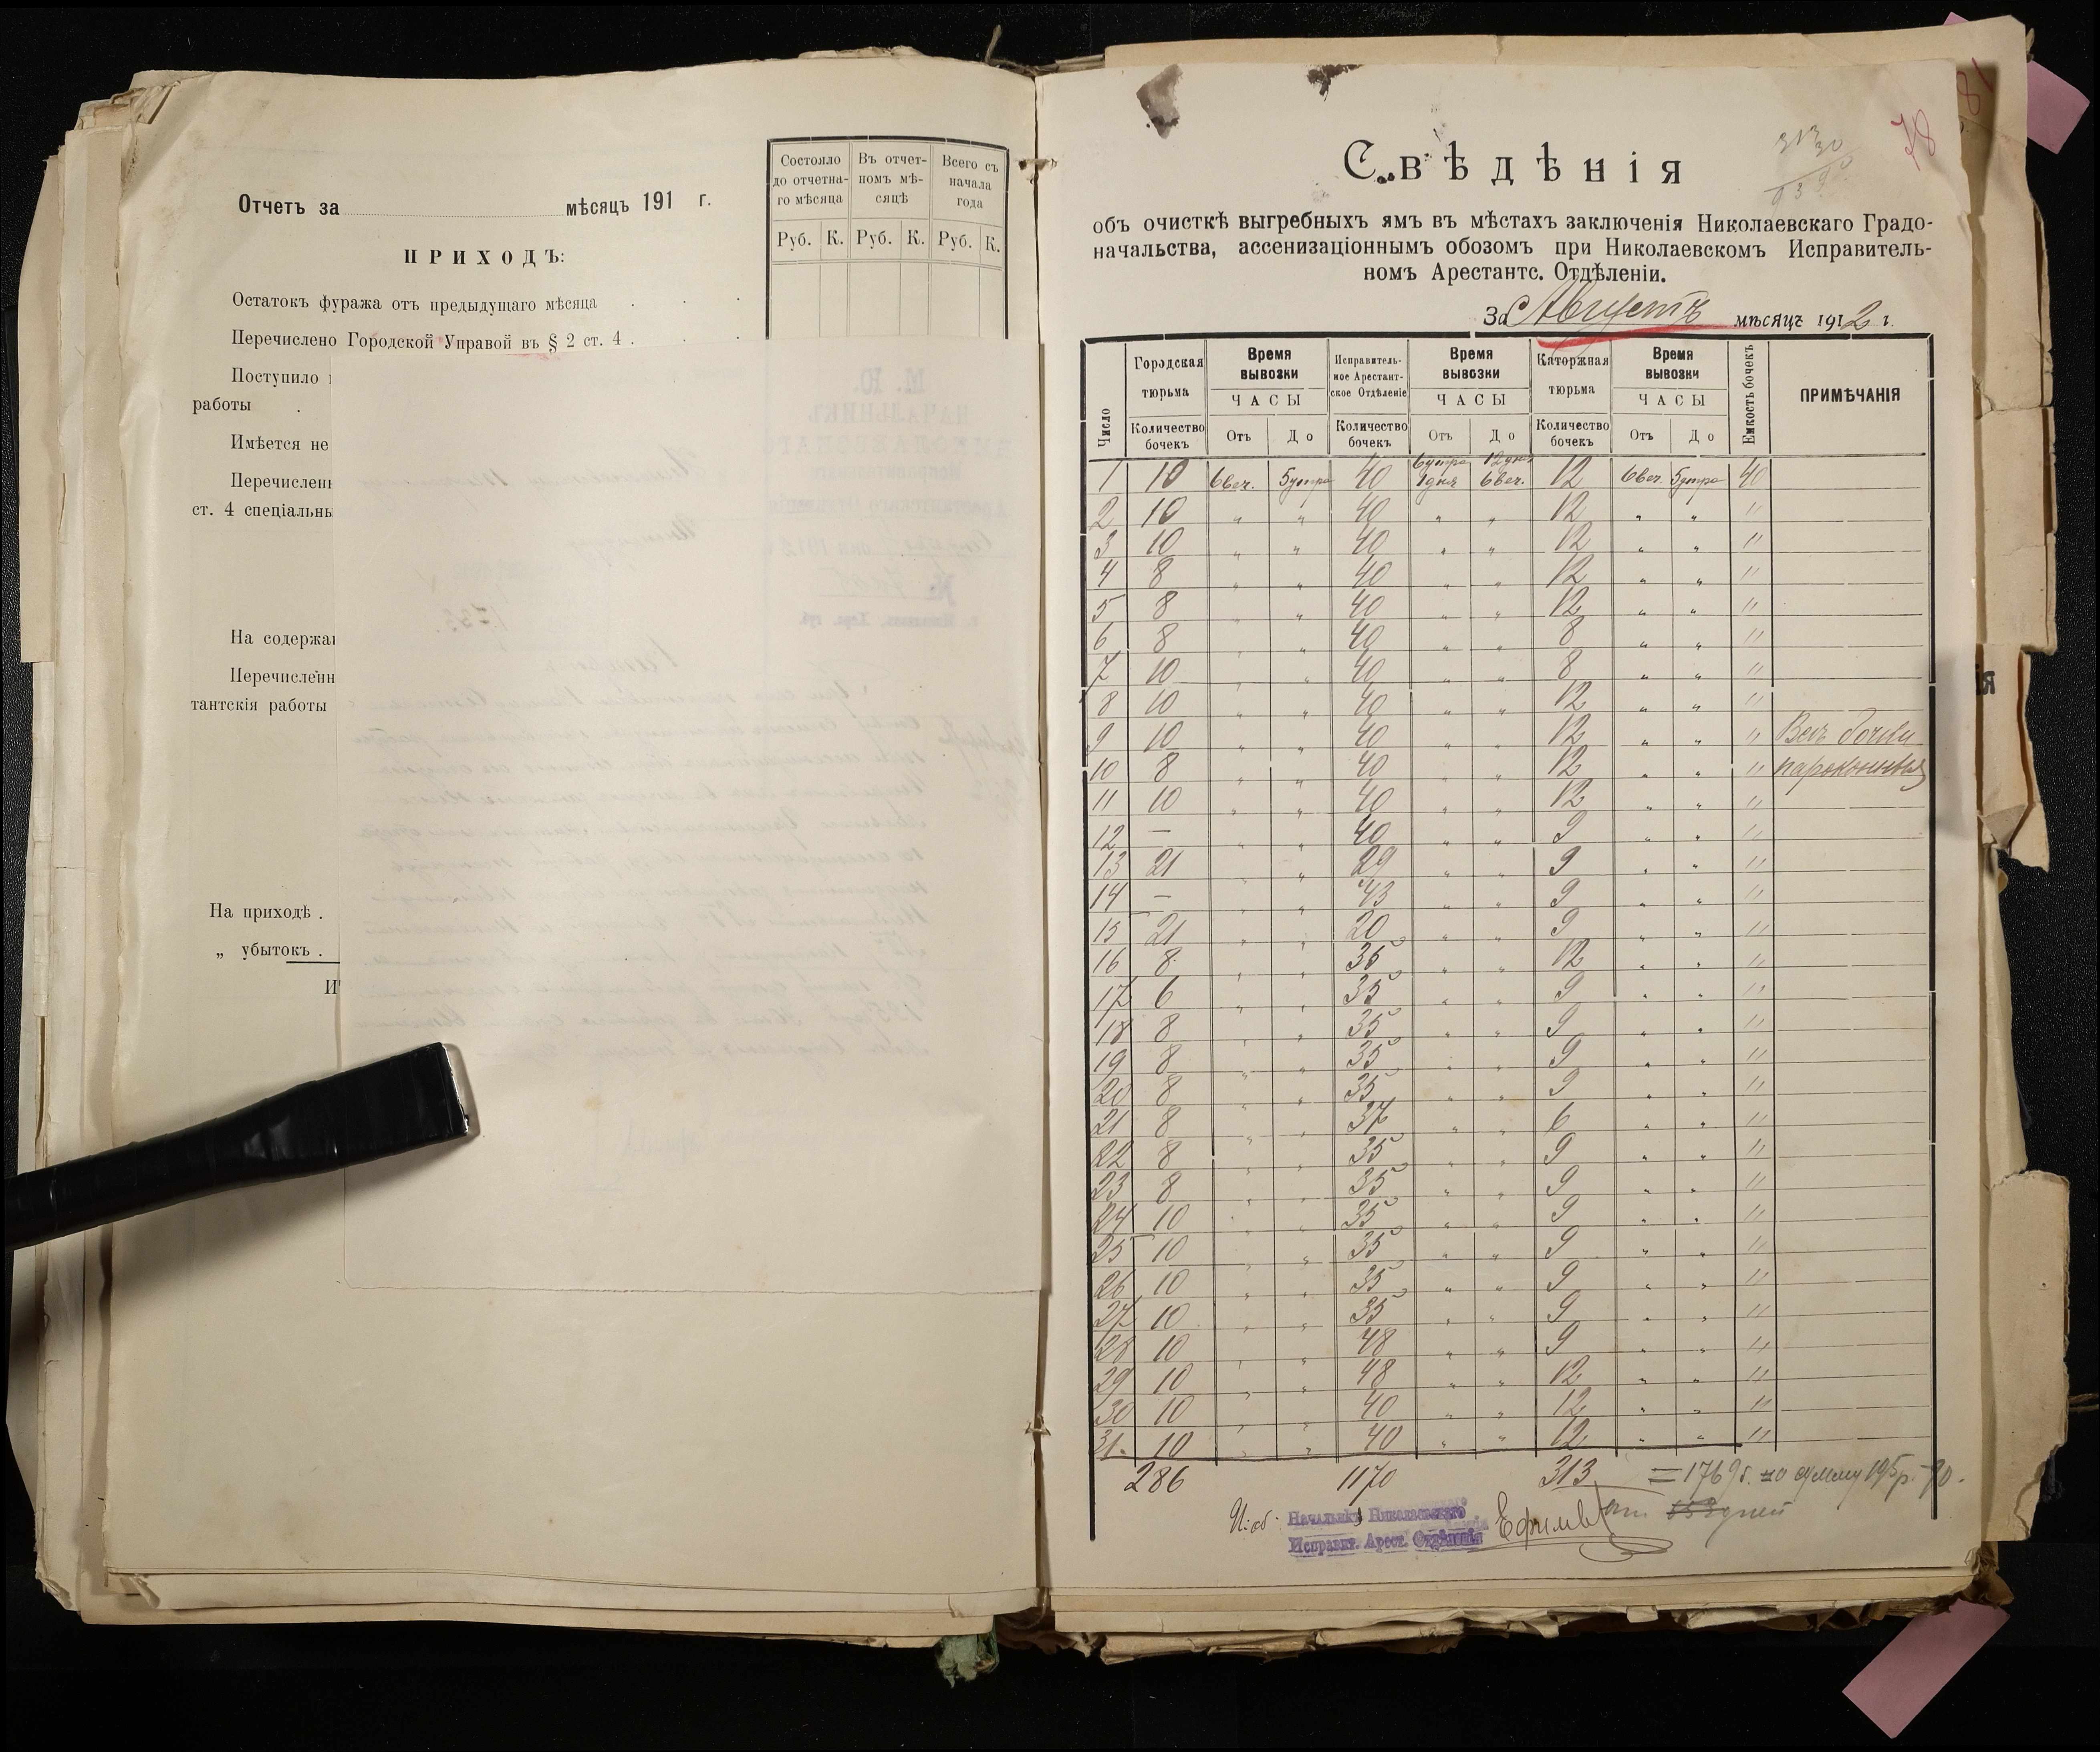 Отчетъ за мѣсяцъ 191 г.
ПРИХОДЪ:
Состояло до отчетна-го мѣсяца
Въ отчет-номъ мѣ-сяцѣ
Всего съ начала года
Руб. К. Руб. К. Руб. К.
Остатокъ фуража отъ предыдущаго мѣсяца . . .
Перечислено Городской Управой въ § 2 ст. 4 . . .
Поступило
работы .
Имѣется не
Перечислен
ст. 4 спеціальны
На содержа
Перечисленн
тантскія работы
На приходѣ .
„ убытокъ .
78
313
30
Свѣдѣнія
объ очисткѣ выгребныхъ ямъ въ мѣстахъ заключенія Николаевскаго Градо-
начальства, ассенизаціоннымъ обозомъ при Николаевскомъ Исправитель-
номъ Арестантс. Отдѣленіи.
За Августъ мѣсяцъ 1912 г.
Число
Городская тюрьма
Количество бочекъ
Время вывозки
ЧАСЫ
Отъ До
Исправитель-ное Арестант-ское Отдѣленіе
Количество бочекъ
Время вывозки
ЧАСЫ
Отъ До
Каторжная тюрьма
Количество бочекъ
Время вывозки
ЧАСЫ
Отъ До
Емкость бочекъ
ПРИМѢЧАНІЯ
1 10 6 веч. 5 утра 40 6 утра 1 дня 12 дня 6 веч. 12 6 веч. 5 утра 40
2 10 „ „ 40 „ „ 12 „ „ "
3 10 „ „ 40 „ „ 12 „ „ "
4 8 „ „ 40 „ „ 12 „ „ "
5 8 „ „ 40 „ „ 12 „ „ "
6 8 „ „ 40 „ „ 8 „ „ "
7 10 „ „ 40 „ „ 8 „ „ "
8 10 „ „ 40 „ „ 12 „ „ "
9 10 „ „ 40 „ „ 12 „ „ " Всѣ бочки
10 8 „ „ 40 „ „ 12 „ „ " пароконныя
11 10 „ „ 40 „ „ 12 „ „ "
12 — „ „ 40 „ „ 9 „ „ "
13 21 „ „ 29 „ „ 9 „ „ "
14 — „ „ 43 „ „ 9 „ „ "
15 21 „ „ 20 „ „ 9 „ „ "
16 8 „ „ 35 „ „ 12 „ „ "
17 6 „ „ 35 „ „ 9 „ „ "
18 8 „ „ 35 „ „ 9 „ „ "
19 8 „ „ 35 „ „ 9 „ „ "
20 8 „ „ 35 „ „ 9 „ „ "
21 8 „ „ 37 „ „ 6 „ „ "
22 8 „ „ 35 „ „ 9 „ „ "
23 8 „ „ 35 „ „ 9 „ „ "
24 10 „ „ 35 „ „ 9 „ „ "
25 10 „ „ 35 „ „ 9 „ „ "
26 10 „ „ 35 „ „ 9 „ „ "
27 10 „ „ 35 „ „ 9 „ „ "
28 10 „ „ 48 „ „ 9 „ „ "
29 10 „ „ 48 „ „ 12 „ „ "
30 10 „ „ 40 „ „ 12 „ „ "
31 10 „ „ 40 „ „ 12 „ „ "
286 1170 313 = 1769 б. на сумму
И. об. Начальника Николаевскаго
Исправит. Арест. Отдѣленія